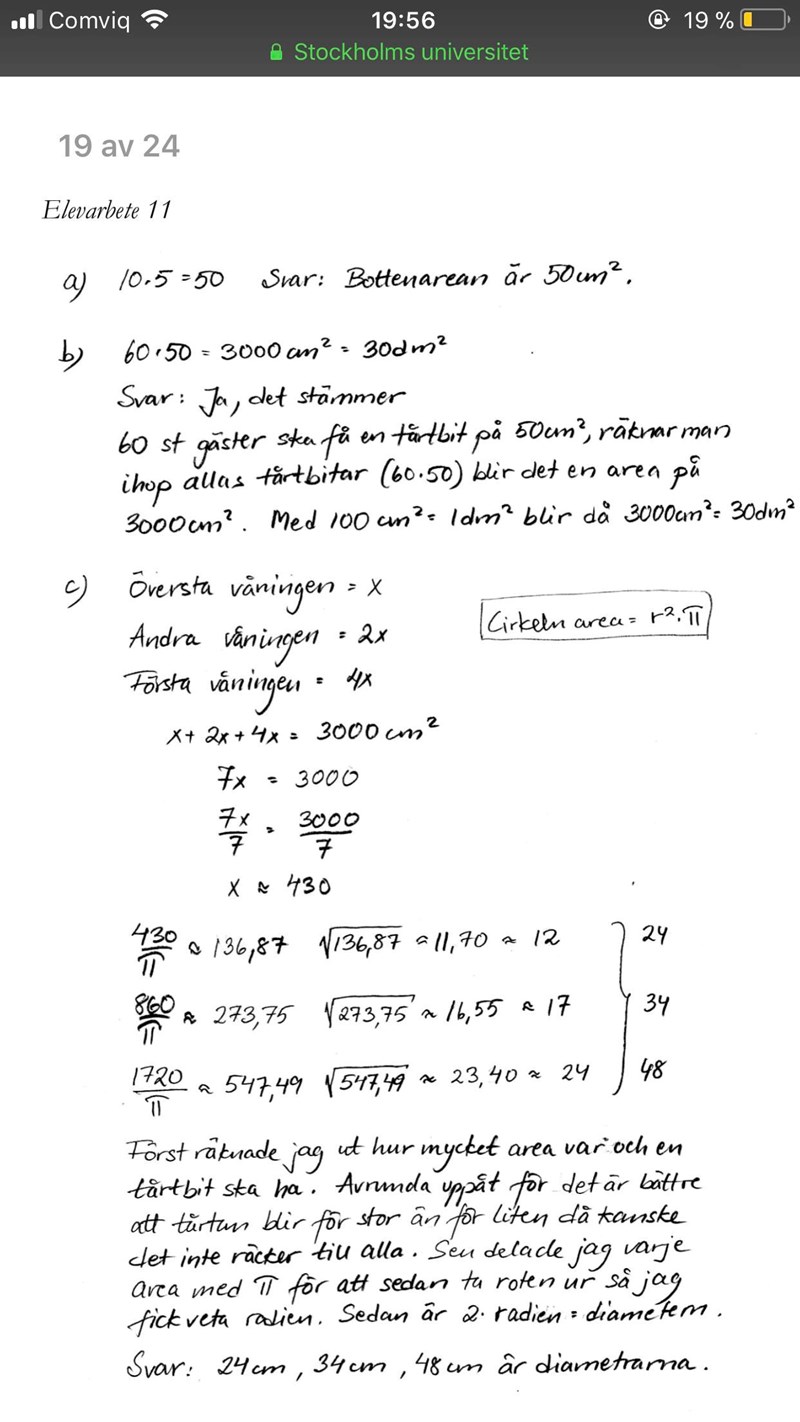 Comviq 19:56 19 %
Stockholms universitet
19 av 24
Elevarbete 11
a) 10·5 = 50 Svar: Bottenarean är 50 cm².
b) 60·50 = 3000 cm² = 30 dm²
Svar: Ja, det stämmer
60 st gäster ska få en tårtbit på 50cm², räknar man
ihop allas tårtbitar (60·50) blir det en area på
3000cm². Med 100 cm² = 1dm² blir då 3000cm² = 30dm²
c) Översta våningen = x
Andra våningen = 2x
Cirkeln area = r²·π
Första våningen = 4x
x + 2x + 4x = 3000 cm²
7x = 3000
7x/7 = 3000/7
x ≈ 430
430/π ≈ 136,87 √136,87 ≈ 11,70 ≈ 12 } 24
860/π ≈ 273,75 √273,75 ≈ 16,55 ≈ 17 34
1720/π ≈ 547,49 √547,49 ≈ 23,40 ≈ 24 48
Först räknade jag ut hur mycket area var och en
tårtbit ska ha. Avrunda uppåt för det är bättre
att tårtan blir för stor än för liten då kanske
det inte räcker till alla. Sen delade jag varje
area med π för att sedan ta roten ur så jag
fick veta radien. Sedan är 2· radien = diametern.
Svar: 24cm, 34cm, 48cm är diametrarna.